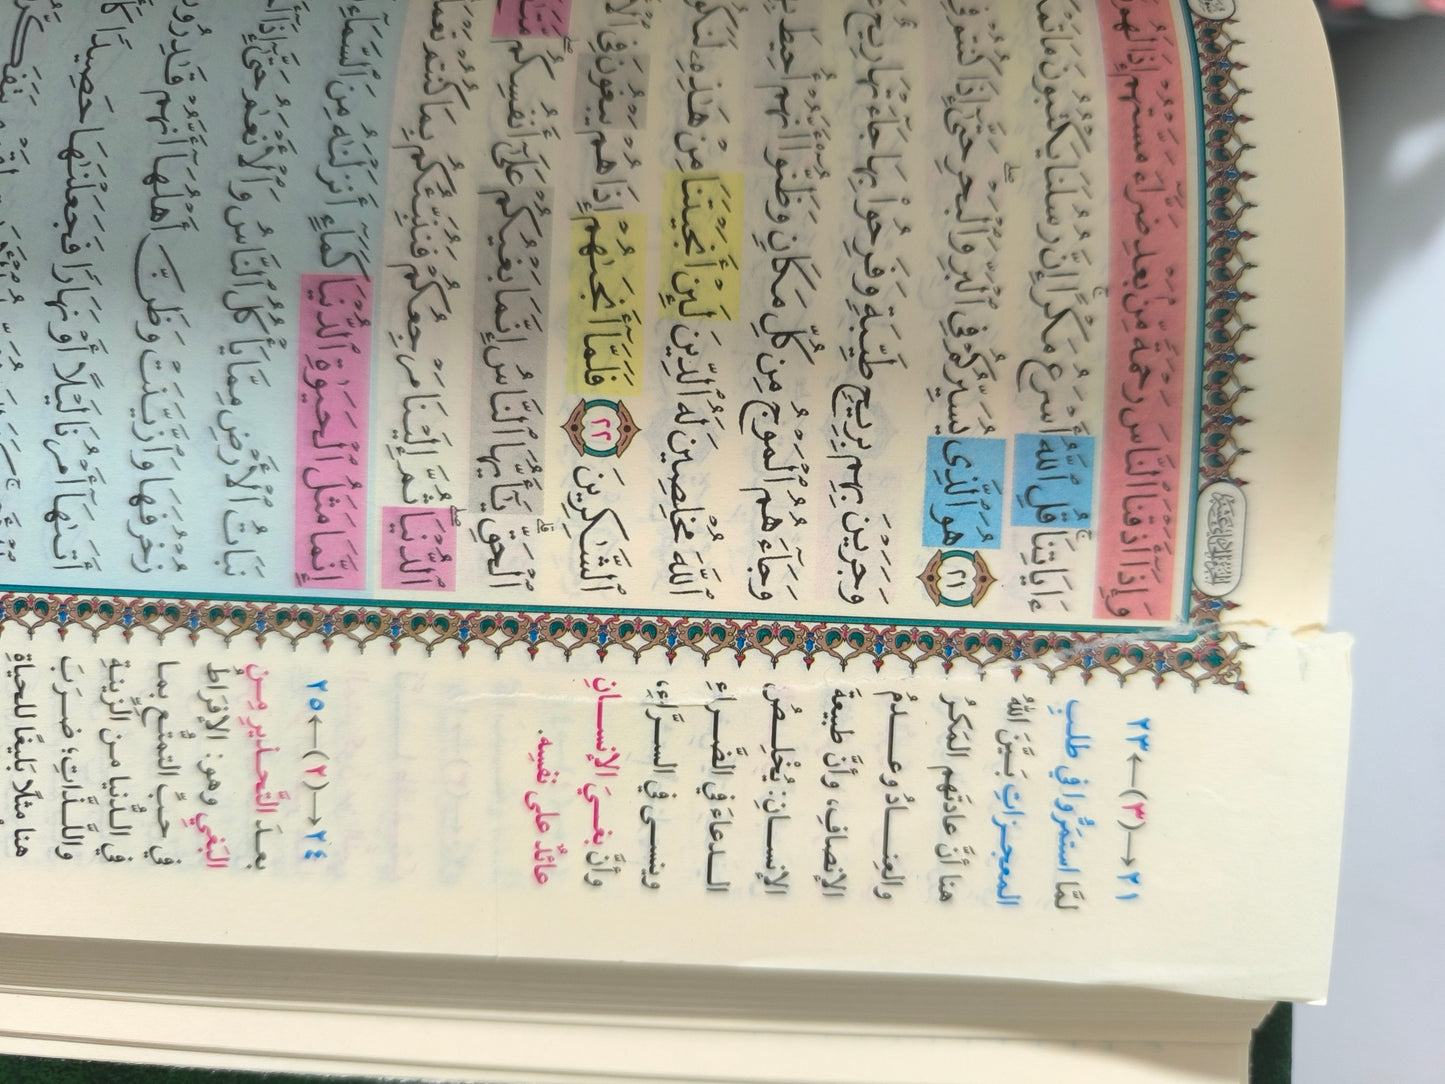 وَإِذَآ أَذَقْنَا ٱلنَّاسَ رَحْمَةً مِّنۢ بَعْدِ ضَرَّآءَ مَسَّتْهُمْ إِذَا لَهُم
ءَايَاتِنَا قُلِ ٱللَّهُ أَسْرَعُ مَكْرًا إِنَّ رُسُلَنَا يَكْتُبُونَ مَا
٢١ هُوَ ٱلَّذِى يُسَيِّرُكُمْ فِى ٱلْبَرِّ وَٱلْبَحْرِ حَتَّىٰٓ إِذَا كُنتُمْ
وَجَرَيْنَ بِهِم بِرِيحٍ طَيِّبَةٍ وَفَرِحُوا۟ بِهَا جَآءَتْهَا رِيحٌ
وَجَآءَهُمُ ٱلْمَوْجُ مِن كُلِّ مَكَانٍ وَظَنُّوٓا۟ أَنَّهُمْ أُحِيطَ
ٱللَّهَ مُخْلِصِينَ لَهُ ٱلدِّينَ لَئِنْ أَنجَيْتَنَا مِنْ هَٰذِهِۦ
ٱلشَّٰكِرِينَ ٢٢ فَلَمَّآ أَنجَىٰهُمْ إِذَا هُمْ يَبْغُونَ فِى
ٱلْحَقِّ يَٰٓأَيُّهَا ٱلنَّاسُ إِنَّمَا بَغْيُكُمْ عَلَىٰٓ أَنفُسِكُم
ٱلدُّنْيَا ثُمَّ إِلَيْنَا مَرْجِعُكُمْ فَنُنَبِّئُكُم بِمَا كُنتُمْ
إِنَّمَا مَثَلُ ٱلْحَيَوٰةِ ٱلدُّنْيَا كَمَآءٍ أَنزَلْنَٰهُ مِنَ ٱلسَّمَآءِ
نَبَاتُ ٱلْأَرْضِ مِمَّا يَأْكُلُ ٱلنَّاسُ وَٱلْأَنْعَٰمُ حَتَّىٰٓ إِذَآ
زُخْرُفَهَا وَٱزَّيَّنَتْ وَظَنَّ أَهْلُهَآ أَنَّهُمْ قَٰدِرُونَ
أَتَىٰهَآ أَمْرُنَا لَيْلًا أَوْ نَهَارًا فَجَعَلْنَٰهَا حَصِيدًا
٢١←(٣)→٢٣
لمَّا استمرُّوا في طلبِ
المعجزاتِ بَيَّنَ اللهُ
هنا أنَّ عادتَهم المَكرُ
والعِنادُ وعدمُ
الإنصافِ، وأنَّ طبيعةَ
الإنسانِ: يُخْلِصُ
الدعاءَ في الضَّراءِ
وينسى في السرَّاءِ،
وأنَّ بغيَ الإنسانِ
عائدٌ على نفسِه.
٢٤←(٢)→٢٥
بعدَ التَّحذيرِ مِن
البَغي وهو: الإفراطُ
في حبِّ التمتُّعِ بما
في الدُّنيا من الزِّينةِ
واللَّذاتِ؛ ضربَ
هنا مثلًا بليغًا للحياةِ